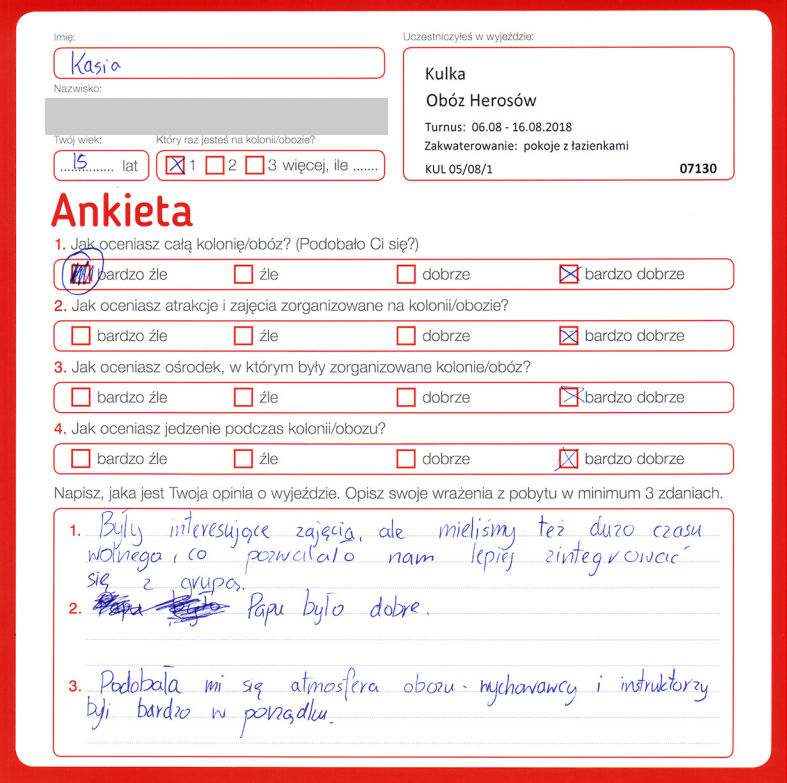 Imię:
Kasia
Nazwisko:
Twój wiek:
15 lat
Który raz jesteś na kolonii/obozie?
1 2 3 więcej, ile .......
Uczestniczyłeś w wyjeździe:
Kulka
Obóz Herosów
Turnus: 06.08 - 16.08.2018
Zakwaterowanie: pokoje z łazienkami
KUL 05/08/1 07130
Ankieta
1. Jak oceniasz całą kolonię/obóz? (Podobało Ci się?)
bardzo źle źle dobrze bardzo dobrze
2. Jak oceniasz atrakcje i zajęcia zorganizowane na kolonii/obozie?
bardzo źle źle dobrze bardzo dobrze
3. Jak oceniasz ośrodek, w którym były zorganizowane kolonie/obóz?
bardzo źle źle dobrze bardzo dobrze
4. Jak oceniasz jedzenie podczas kolonii/obozu?
bardzo źle źle dobrze bardzo dobrze
Napisz, jaka jest Twoja opinia o wyjeździe. Opisz swoje wrażenia z pobytu w minimum 3 zdaniach.
1. Były interesujące zajęcia, ale mieliśmy też dużo czasu
wolnego, co pozwalało nam lepiej zintegrować
się z grupą.
2. Papu było dobre.
3. Podobała mi się atmosfera obozu - wychowawcy i instruktorzy
byli bardzo w porządku.